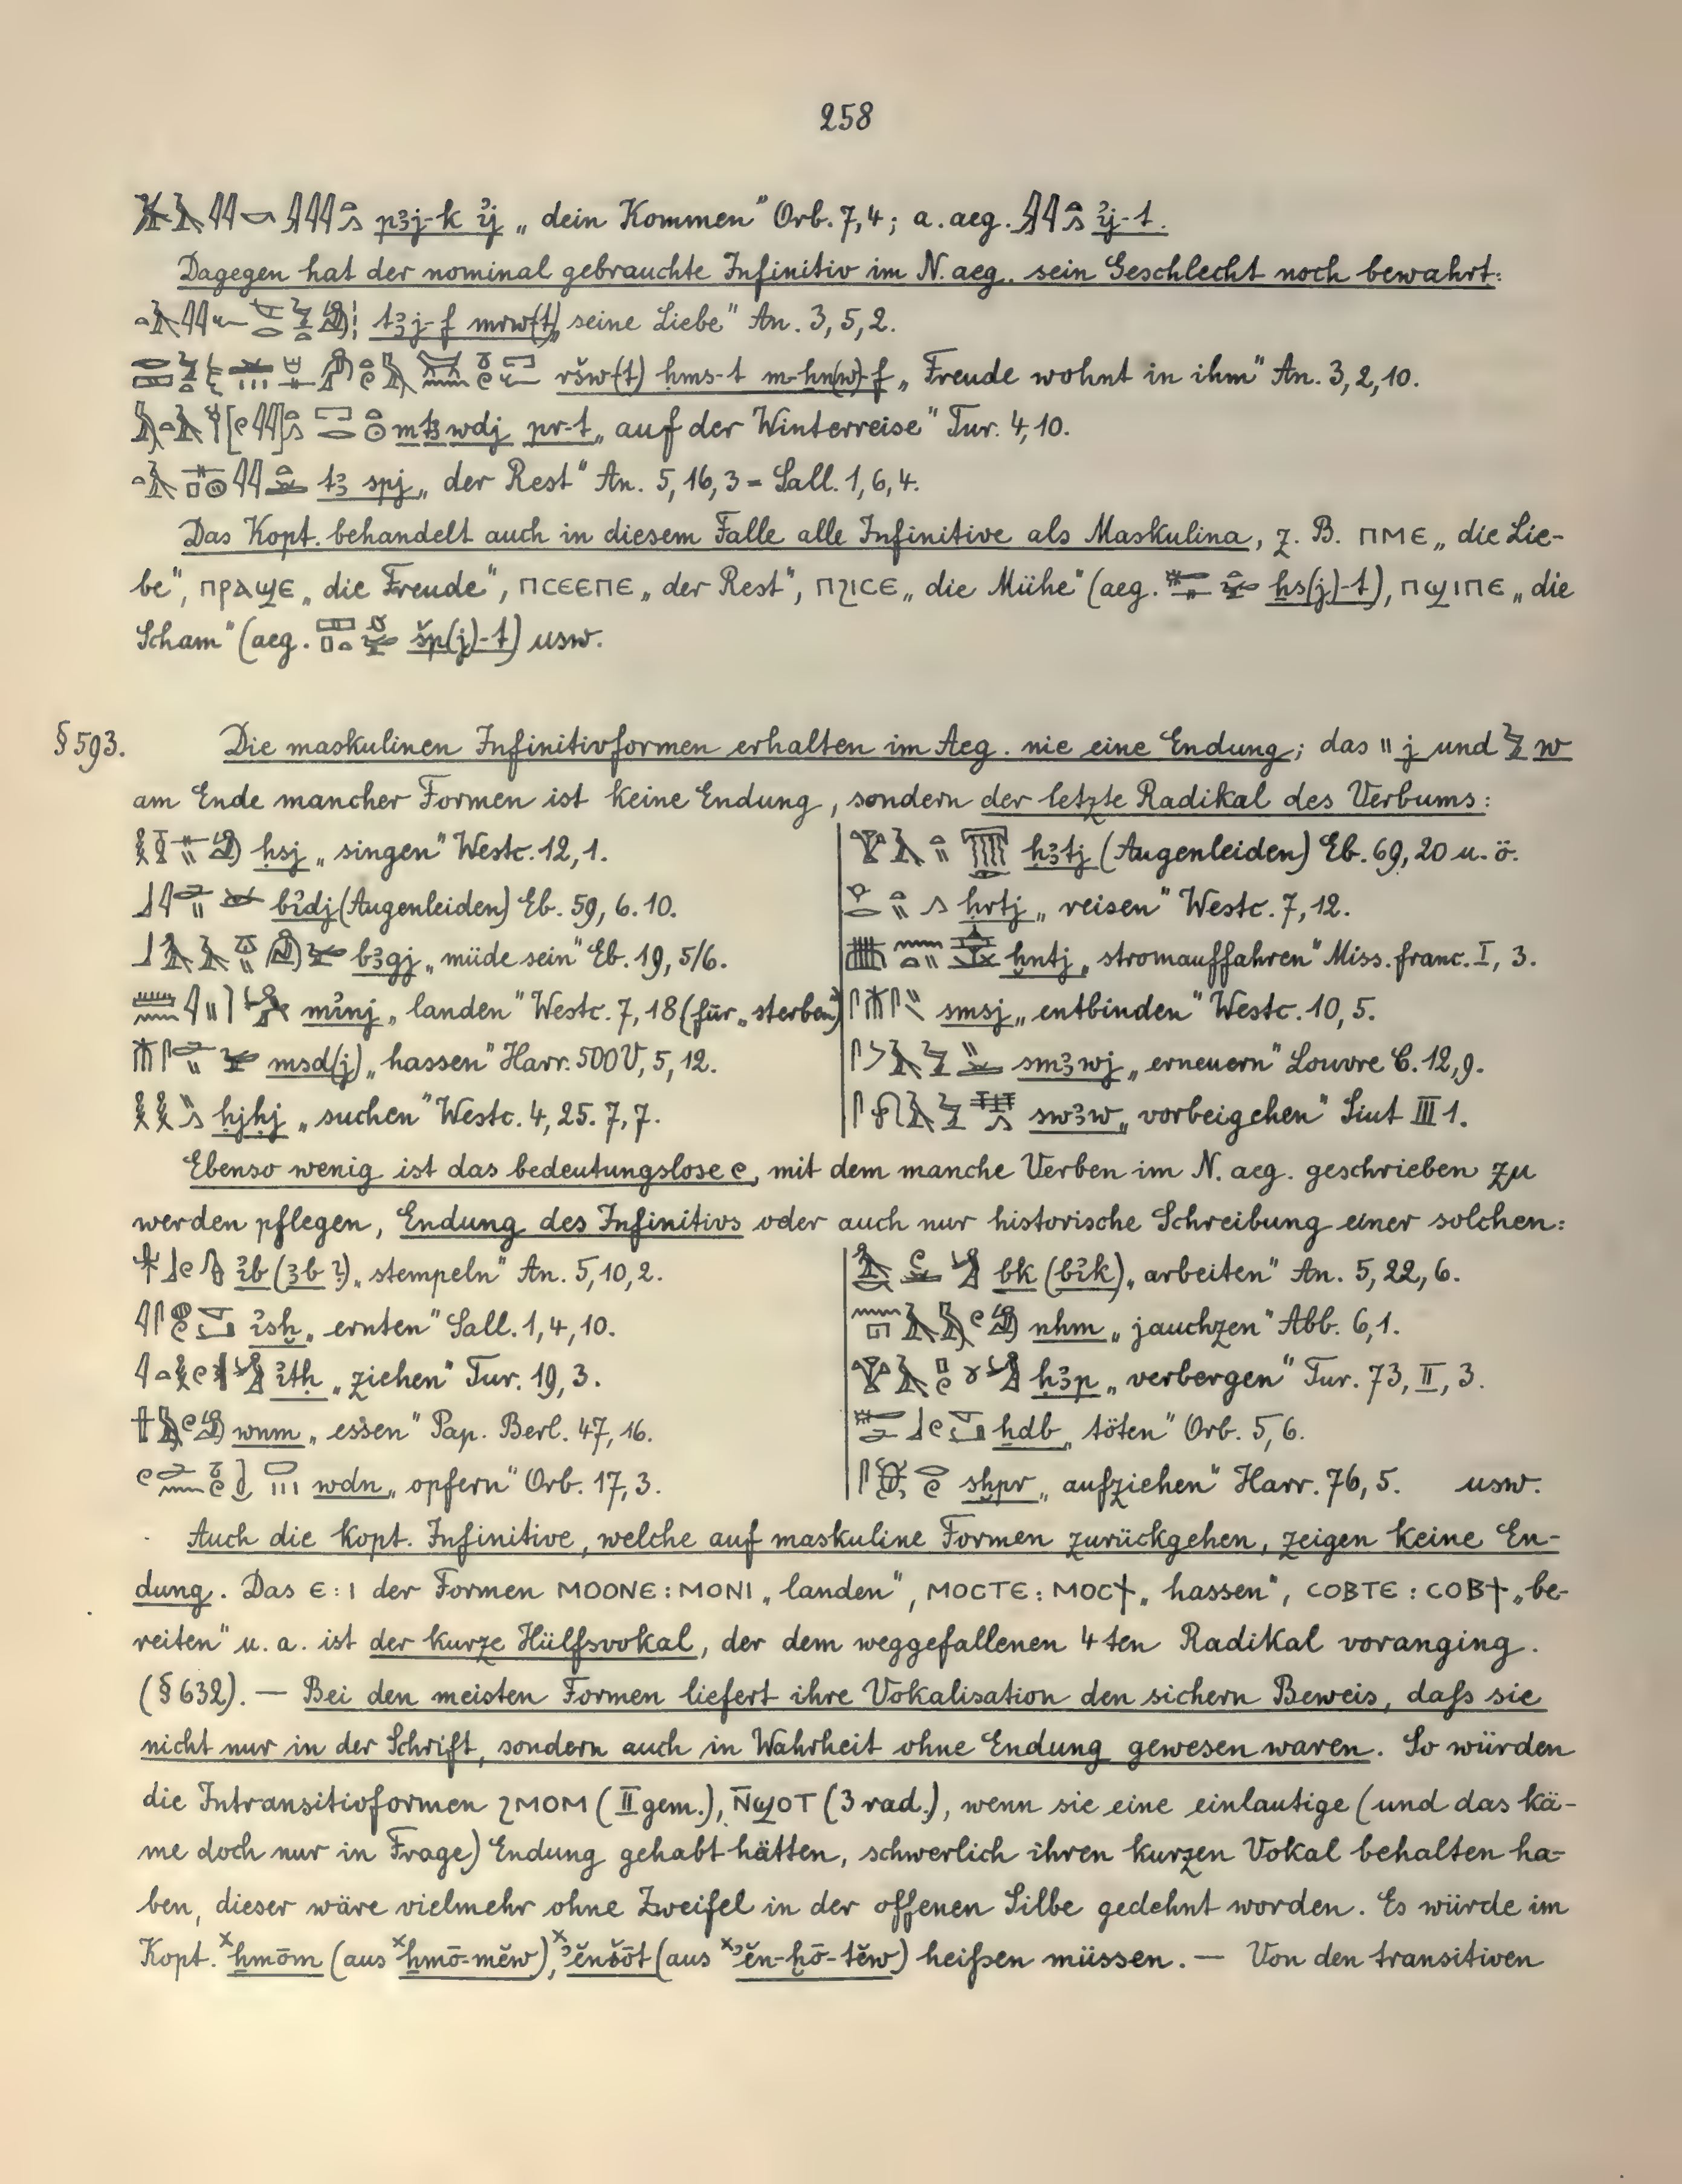 258
pꜣj-k ı͗j „ dein Kommen" Orb. 7,4; a. aeg. ı͗j-t.
Dagegen hat der nominal gebrauchte Infinitiv im N. aeg. sein Geschlecht noch bewahrt:
tꜣj-f mrw(t) „ seine Liebe" An. 3, 5, 2.
ršw(t) ḥms-t m-ẖn(w)-f „ Freude wohnt in ihm" An. 3, 2, 10.
m tꜣ wdj pr-t „ auf der Winterreise" Tur. 4, 10.
tꜣ spj „ der Rest" An. 5, 16, 3 = Sall. 1, 6, 4.
Das Kopt. behandelt auch in diesem Falle alle Infinitive als Maskulina, z. B. ⲠⲘⲈ „ die Lie-
be", ⲠⲢⲀϢⲈ „ die Freude", ⲠⲤⲈⲈⲠⲈ „ der Rest", ⲠϨⲒⲤⲈ „ die Mühe" (aeg. ḫs(j)-t), ⲠϢⲒⲠⲈ „ die
Scham" (aeg. šp(j)-t) usw.
§ 593. Die maskulinen Infinitivformen erhalten im Aeg. nie eine Endung; das \\ j und w
am Ende mancher Formen ist keine Endung, sondern der letzte Radikal des Verbums:
ḥsj „ singen" Westc. 12, 1.
bı͗dj (Augenleiden) Eb. 59, 6. 10.
bꜣgj „ müde sein" Eb. 19, 5/6.
mı͗nj „ landen" Westc. 7, 18 (für „ sterben")
msd(j) „ hassen" Harr. 500 V, 5, 12.
ḥjḥj „ suchen" Westc. 4, 25. 7, 7.
ḫꜣtj (Augenleiden) Eb. 69, 20 u. ö.
ḥrtj „ reisen" Westc. 7, 12.
ḫntj „ stromauffahren" Miss. franc. I, 3.
smsj „ entbinden" Westc. 10, 5.
smꜣwj „ erneuern" Louvre C. 12, 9.
swꜣw „ vorbeigehen" Siut III 1.
Ebenso wenig ist das bedeutungslose e, mit dem manche Verben im N. aeg. geschrieben zu
werden pflegen, Endung des Infinitivs oder auch nur historische Schreibung einer solchen:
ı͗b (ꜣb ?) „ stempeln" An. 5, 10, 2.
ı͗sḫ „ ernten" Sall. 1, 4, 10.
ı͗tḥ „ ziehen" Tur. 19, 3.
wnm „ essen" Pap. Berl. 47, 16.
wdn „ opfern" Orb. 17, 3.
bk (bı͗k) „ arbeiten" An. 5, 22, 6.
nhm „ jauchzen" Abb. 6, 1.
ḥꜣp „ verbergen" Tur. 73, II, 3.
ḫdb „ töten" Orb. 5, 6.
sḫpr „ aufziehen" Harr. 76, 5. usw.
Auch die kopt. Infinitive, welche auf maskuline Formen zurückgehen, zeigen keine En-
dung. Das Ⲉ : Ⲓ der Formen ⲘⲞⲞⲚⲈ : ⲘⲞⲚⲒ „ landen", ⲘⲞⲤⲦⲈ : ⲘⲞⲤϮ „ hassen", ⲤⲞⲂⲦⲈ : ⲤⲞⲂϮ „ be-
reiten" u. a. ist der kurze Hülfsvokal, der dem weggefallenen 4 ten Radikal voranging.
(§ 632). — Bei den meisten Formen liefert ihre Vokalisation den sichern Beweis, daſs sie
nicht nur in der Schrift, sondern auch in Wahrheit ohne Endung gewesen waren. So würden
die Intransitivformen ϨⲘⲞⲘ (II gem.), Ⲛ̄ϢⲞⲦ (3 rad.), wenn sie eine einlautige (und das kä-
me doch nur in Frage) Endung gehabt hätten, schwerlich ihren kurzen Vokal behalten ha-
ben, dieser wäre vielmehr ohne Zweifel in der offenen Silbe gedehnt worden. Es würde im
Kopt. ˣḥmōm (aus ˣḥmō-mĕw), ˣʾĕnšōt (aus ˣʾĕn-ḫō-tĕw) heiſsen müssen. — Von den transitiven